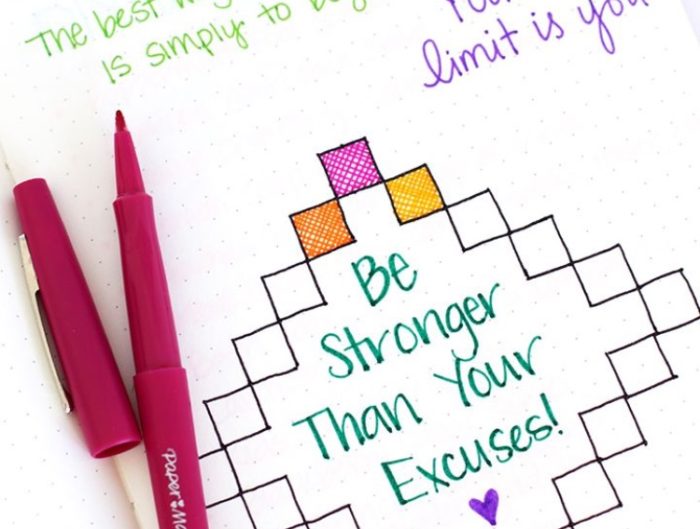 The best
is simply to
limit is
Be
Stronger
Than Your
Excuses!
paper